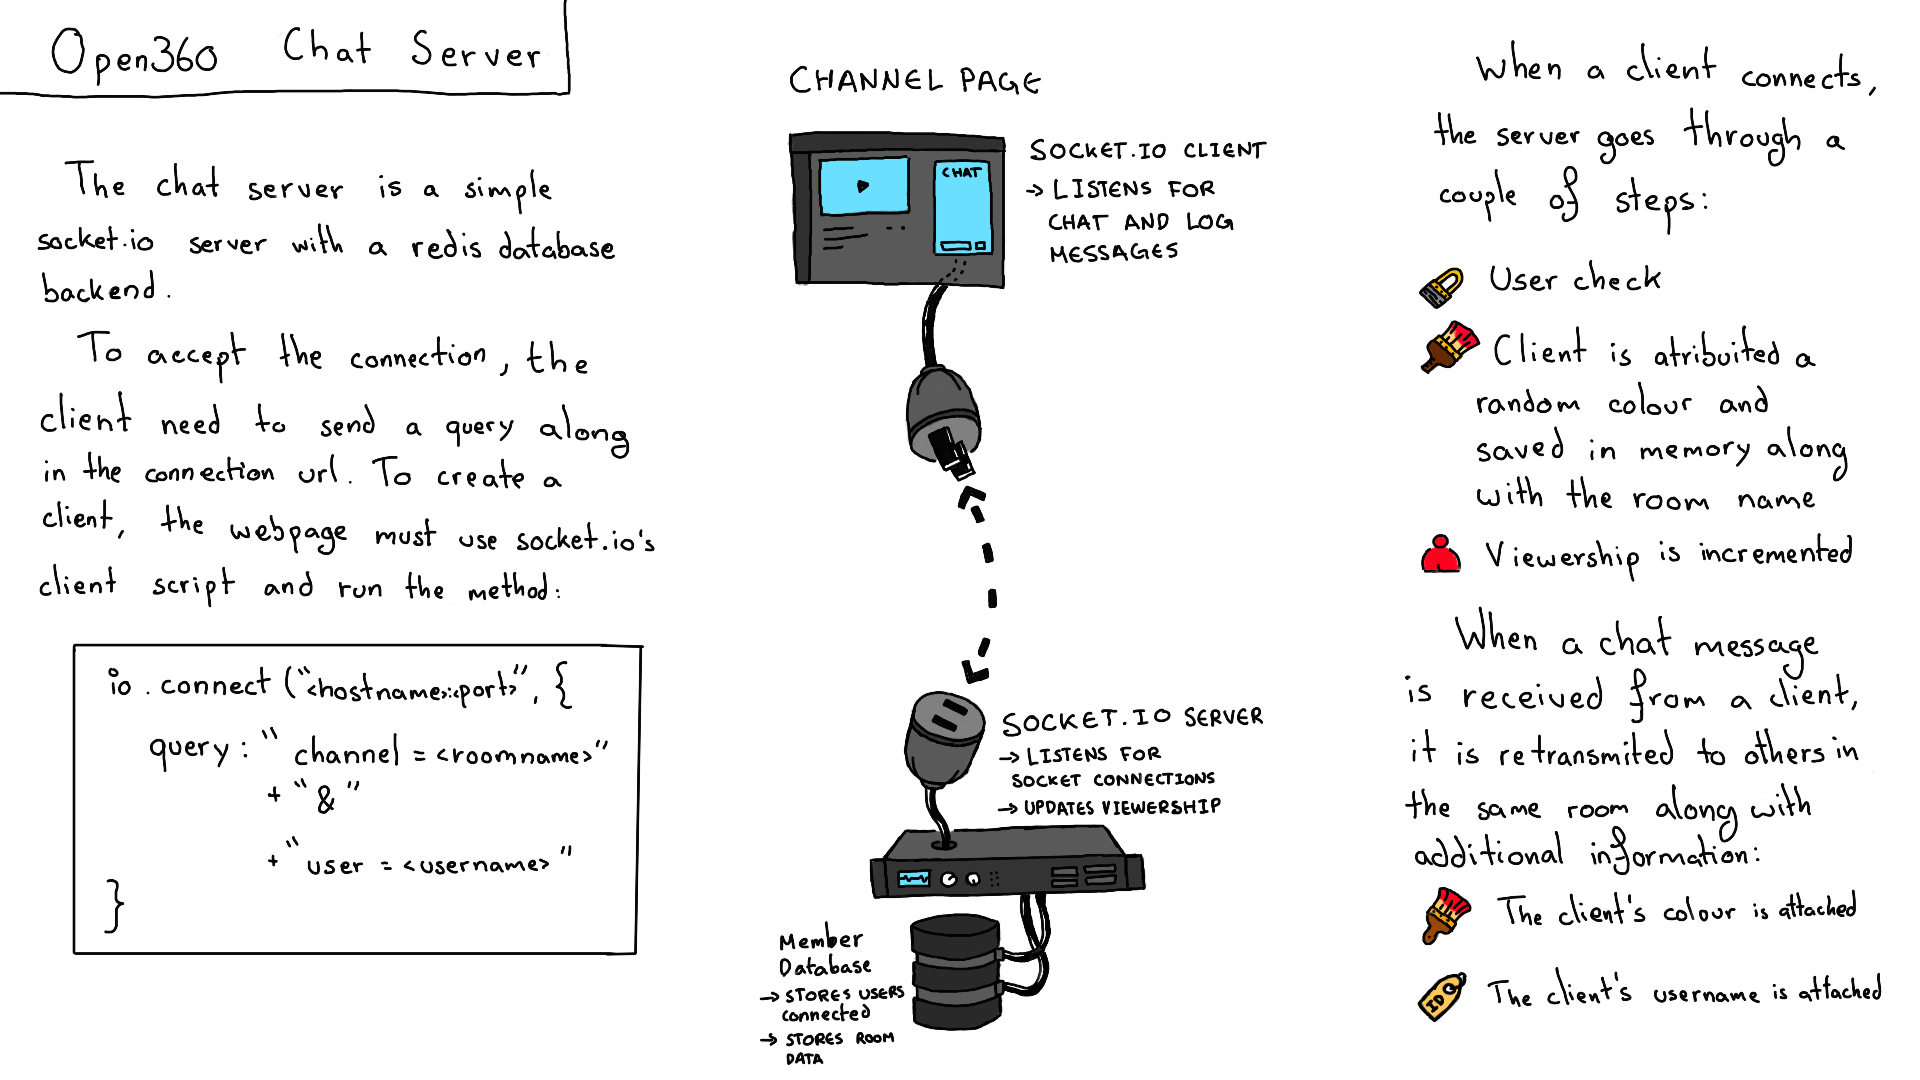 Open360 Chat Server
The chat server is a simple
socket.io server with a redis database
backend.
To accept the connection, the
client need to send a query along
in the connection url. To create a
client, the webpage must use socket.io's
client script and run the method:
io.connect("<hostname>:<port>", {
query: "channel = <roomname>"
+ "&"
+ "user = <username>"
}
CHANNEL PAGE
CHAT
SOCKET.IO CLIENT
→ LISTENS FOR
CHAT AND LOG
MESSAGES
SOCKET.IO SERVER
→ LISTENS FOR
SOCKET CONNECTIONS
→ UPDATES VIEWERSHIP
Member
Database
→ STORES USERS
connected
→ STORES ROOM
DATA
When a client connects,
the server goes through a
couple of steps:
User check
Client is atribuited a
random colour and
saved in memory along
with the room name
Viewership is incremented
When a chat message
is received from a client,
it is retransmited to others in
the same room along with
additional information:
The client's colour is attached
ID
The client's username is attached